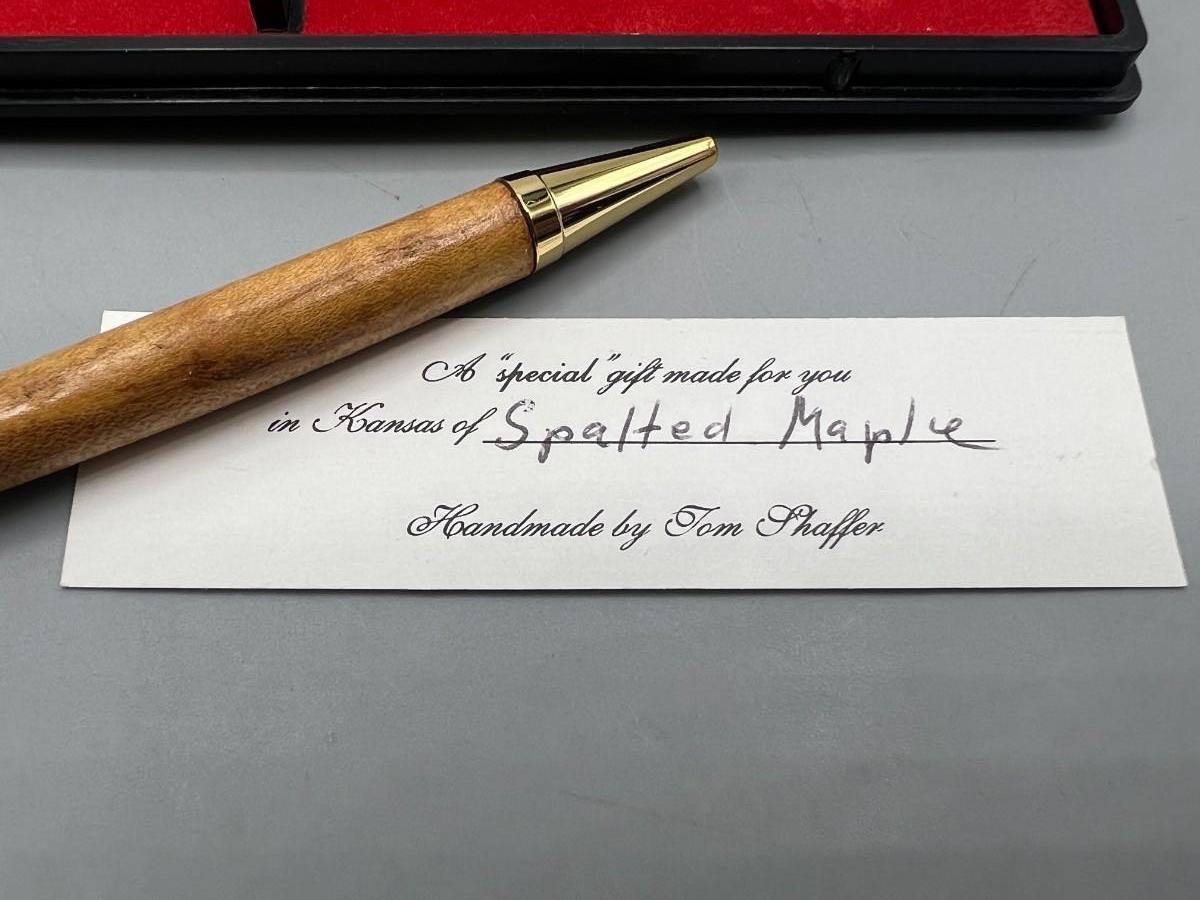 A "special" gift made for you
in Kansas of Spalted Maple
Handmade by Tom Shaffer